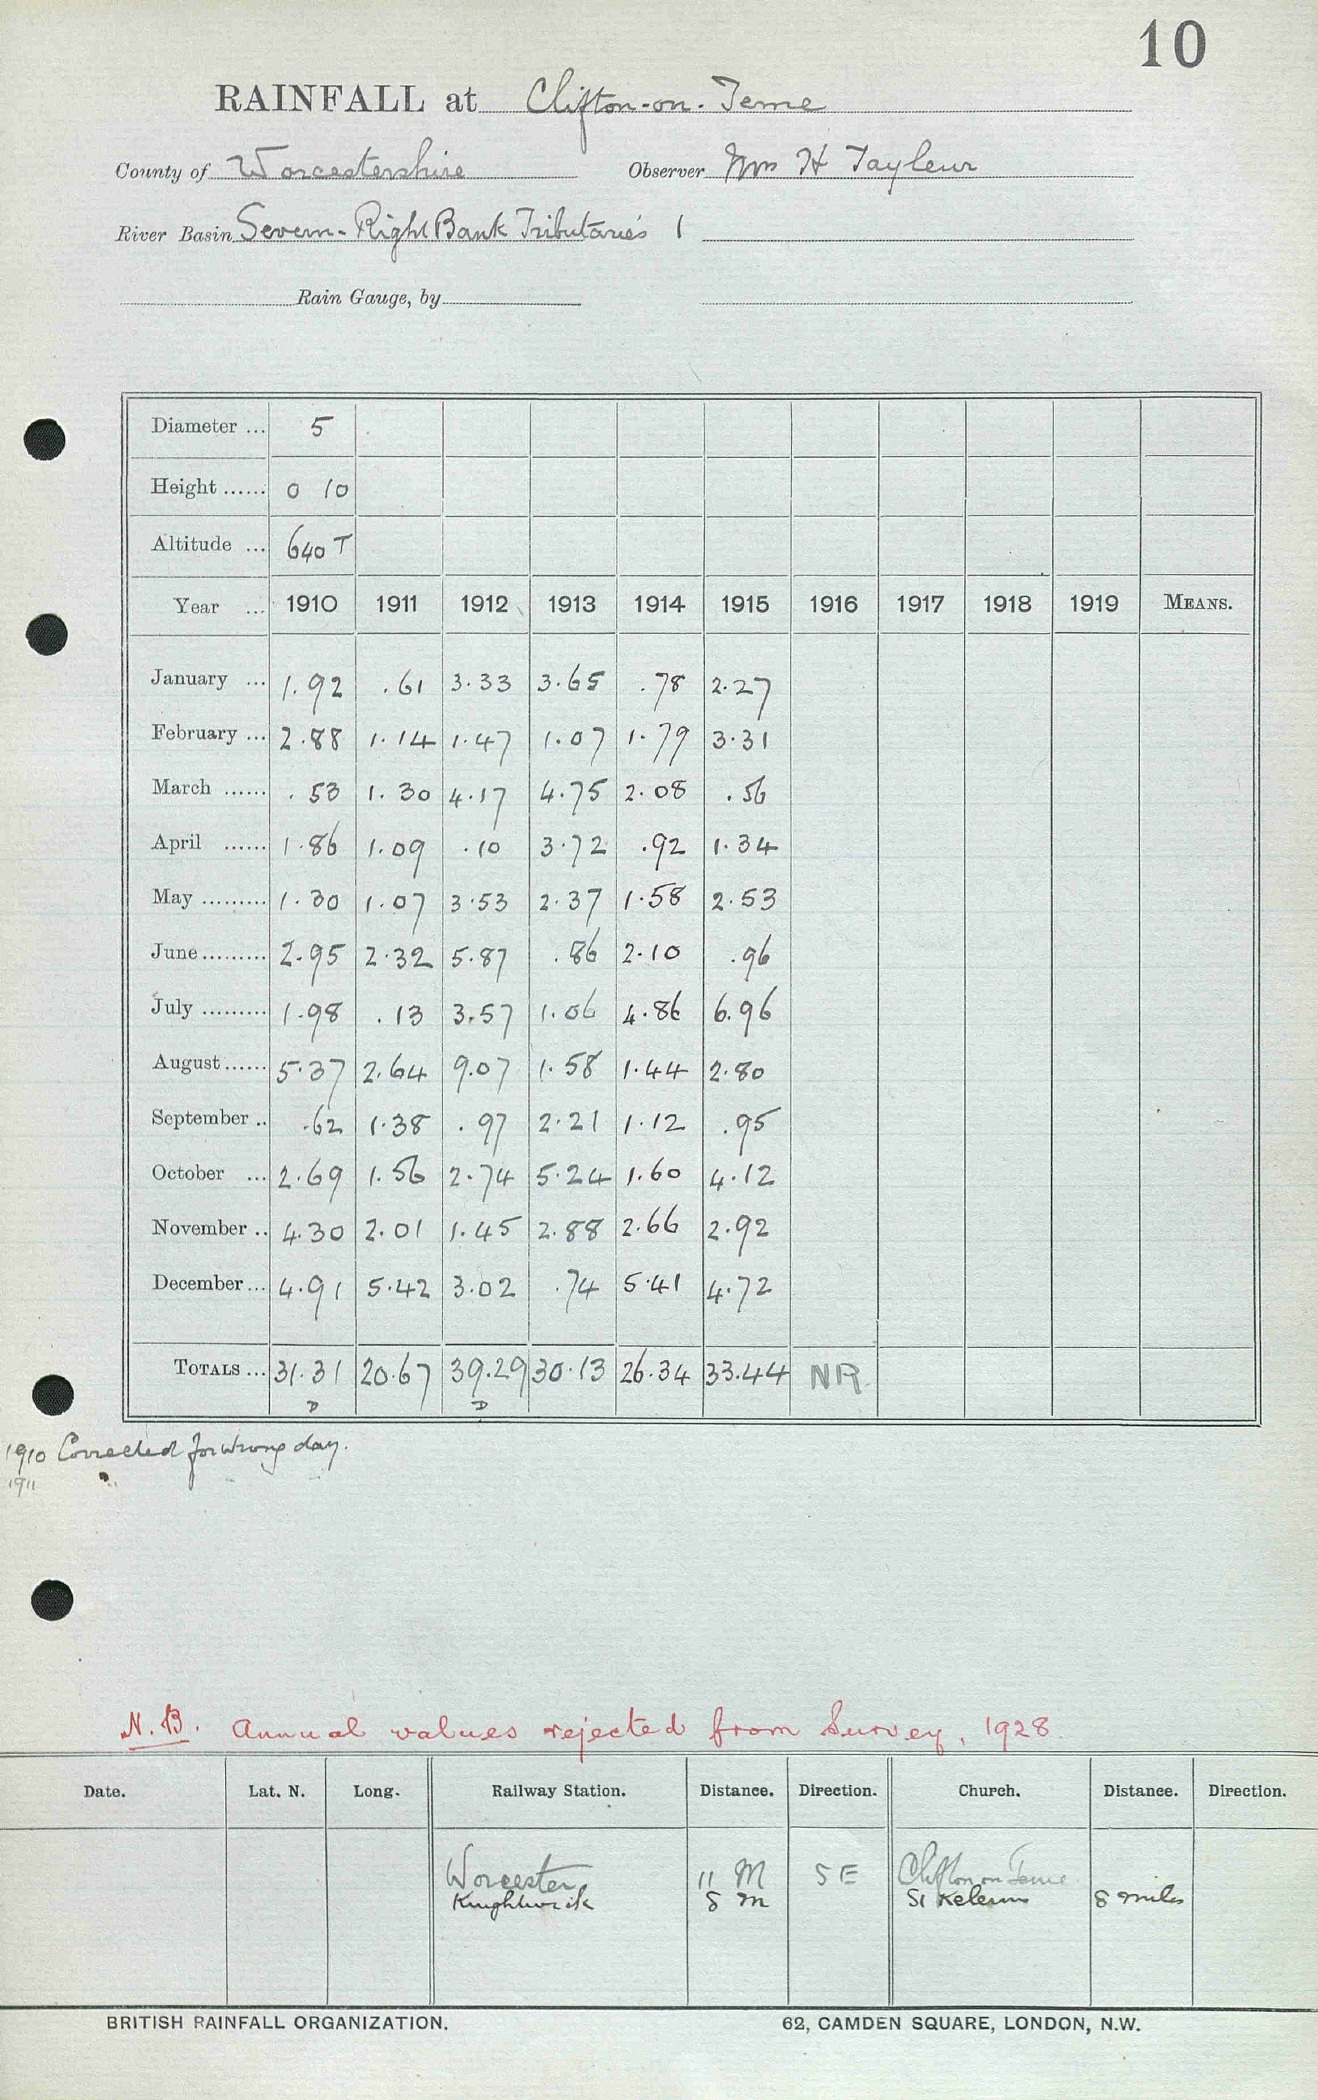 10
RAINFALL at Clifton-on-Teme
County of Worcestershire Observer Mrs H Tayleur
River Basin Severn - Right Bank Tributaries 1
Rain Gauge, by
Diameter ... 5
Height ...... 0 10
Altitude ... 640 T
Year ... 1910 1911 1912 1913 1914 1915 1916 1917 1918 1919 MEANS.
January ... 1.92 .61 3.33 3.65 .78 2.27
February ... 2.88 1.14 1.47 1.07 1.79 3.31
March ...... .53 1.30 4.17 4.75 2.08 .56
April ...... 1.86 1.09 .10 3.72 .92 1.34
May ......... 1.30 1.07 3.53 2.37 1.58 2.53
June ......... 2.95 2.32 5.87 .86 2.10 .96
July ......... 1.98 .13 3.57 1.06 4.86 6.96
August ...... 5.37 2.64 9.07 1.58 1.44 2.80
September .. .62 1.38 .97 2.21 1.12 .95
October ... 2.69 1.56 2.74 5.24 1.60 4.12
November .. 4.30 2.01 1.45 2.88 2.66 2.92
December ... 4.91 5.42 3.02 .74 5.41 4.72
TOTALS ... 31.31 20.67 39.29 30.13 26.34 33.44 NR
D D
1910 Corrected for wrong day.
1911 " - "
N.B. Annual values rejected from Survey, 1928.
Date. Lat. N. Long. Railway Station. Distance. Direction. Church. Distance. Direction.
Worcester 11 M SE Clifton on Teme
Knightwick 8 m St 8 miles
BRITISH RAINFALL ORGANIZATION. 62, CAMDEN SQUARE, LONDON, N.W.